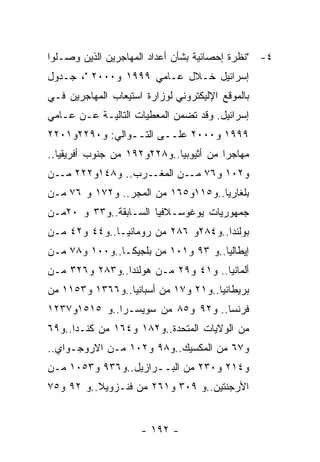 ٤- "نظرة إحصائية بشأن أعداد المهاجرين الذين وصلوا
إسرائيل خلال عامي ١٩٩٩ و٢٠٠٠"، جدول
بالموقع الإليكتروني لوزارة استيعاب المهاجرين في
إسرائيل. وقد تضمن المعطيات التالية عن عامي
١٩٩٩ و٢٠٠٠ على التوالي: و٢٢٩٠و٢٢٠١
مهاجرا من أثيوبيا..و٢٢٨و١٩٢ من جنوب أفريقيا..
و١٠٢ و٧٦ من المغرب.. و١٤٨و٢٢٢ من
بلغاريا..و١١٥و١٦٥ من المجر.. و١٧٢ و ٧٦ من
جمهوريات يوغوسلافيا السابقة..و٣٣ و ٢٠من
بولندا..و٢٨٤و ٢٨٦ من رومانيا..و٤٤ و٤٢ من
إيطاليا..و ٩٣ و١٠١ من بلجيكا..و١٠٠ و٧٨ من
ألمانيا.. و٤١ و٢٩ من هولندا..و٢٨٣ و٣٢٦ من
بريطانيا..و٢١ و١٧ من أسبانيا..و١٣٦٦ و١١٥٣ من
فرنسا.. و٩٢ و٨٥ من سويسرا..و ١٥١٥و١٢٣٧
من الولايات المتحدة..و١٨٢ و١٦٤ من كندا..و٦٩
و٦٧ من المكسيك..و٩٨ و١٠٢ من الاروجواي..
و٢١٤ و٢٣٠ من البرازيل..و٩٣٦ و١٠٥٣ من
الأرجنتين..و ٩٠٣ و٢٦١ من فنزويلا..و ٩٢ و٧٥
- ١٩٢ -